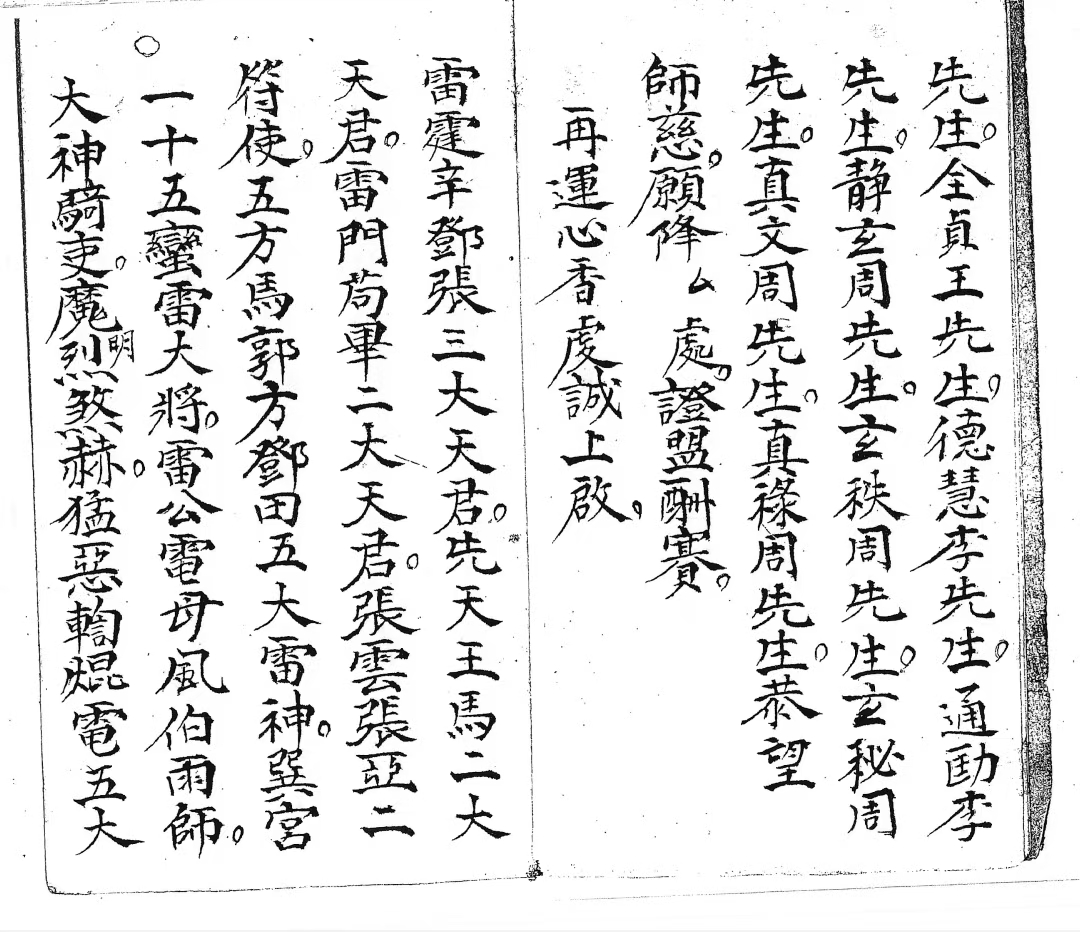 先生。全真王先生。德慧李先生。通勋李
先生。静玄周先生。玄秩周先生。玄秘周
先生。真文周先生。真祿周先生。恭望
師慈。願降厶處。證盟酬賽。
再運心香虔誠上啟。
雷霆辛鄧張三大天君。先天王馬二大
天君。雷門苟畢二大天君。張雲張亞二
符使。五方馬郭方鄧田五大雷神。巽宮
一十五蠻雷大將。雷公電母風伯雨師。
大神騎吏。魔明烈煞赫。猛惡輷焜電五大